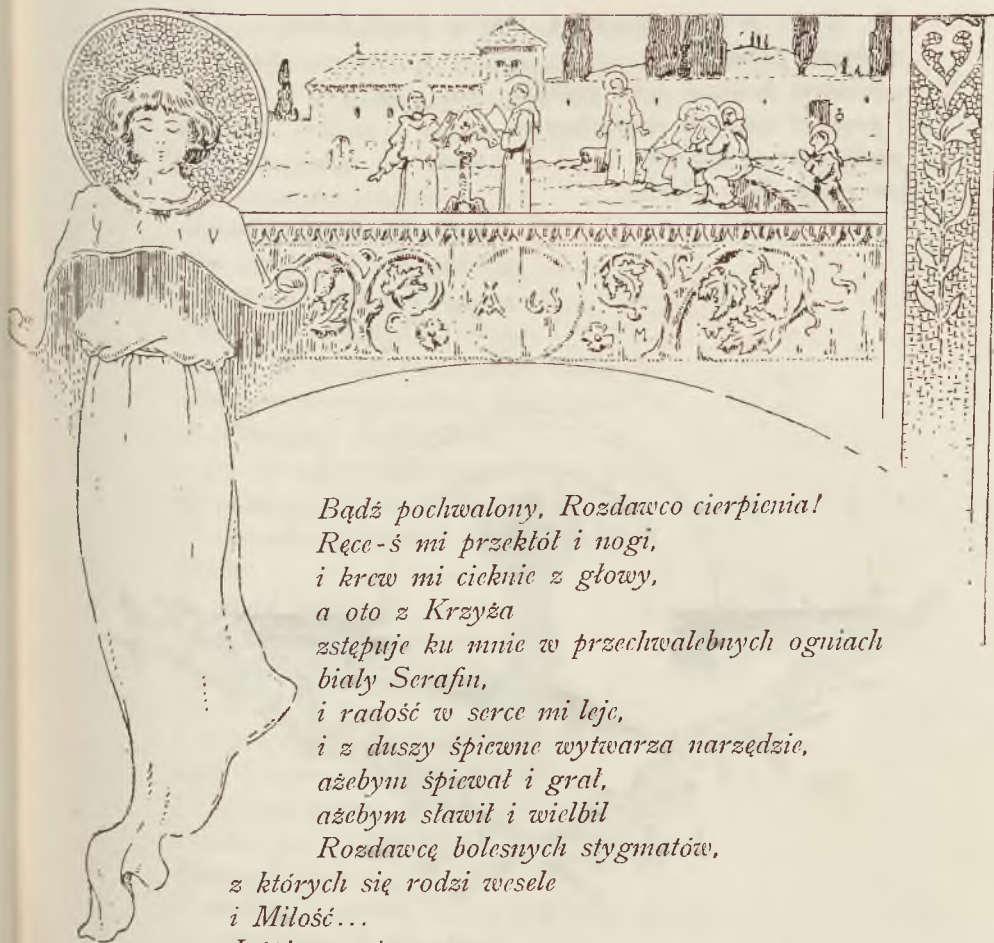 Bądź pochwalony, Rozdawco cierpienia!
Ręce-ś mi przekłół i nogi,
i krew mi cieknie z głowy,
a oto z Krzyża
zstępuje ku mnie w przechwalebnych ogniach
biały Serafin,
i radość w serce mi leje,
i z duszy śpiewne wytwarza narzędzie,
ażebym śpiewał i grał,
ażebym sławił i wielbił
Rozdawcę bolesnych stygmatów,
z których się rodzi wesele
i Miłość...